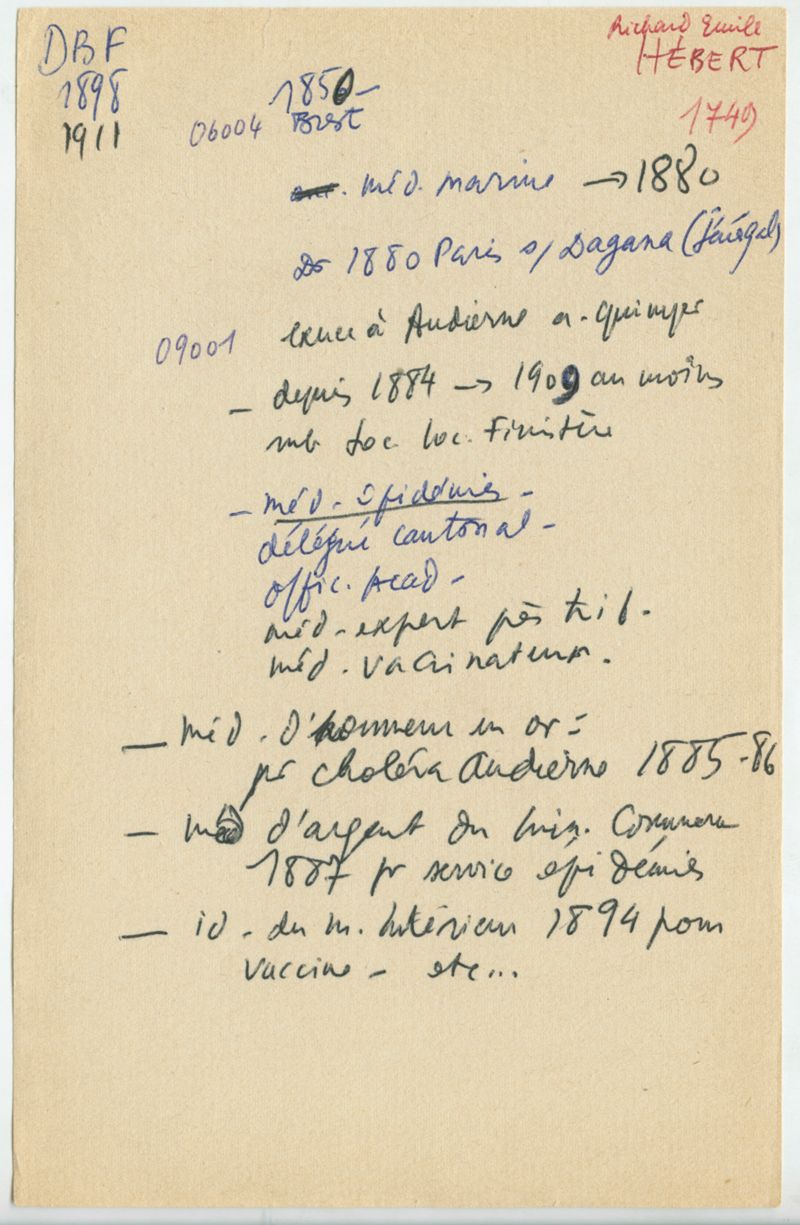 DBF
1898
1911
Richard Emile
HÉBERT
1749
1850-
06004 Brest
méd. marine → 1880
Dr 1880 Paris s/ Dagana (Sénégal)
09001 exerce à Audierne a. Quimper
- depuis 1884 → 1909 au moins
mb Soc. loc. Finistère
- méd. épidémies -
délégué cantonal -
offic. Acad -
méd. expert près trib.
méd. vaccinateur.
- méd. d'honneur en or =
pr choléra Audierne 1885-86
- méd d'argent du min. Commerce
1887 pr service épidémies
- id. du m. Intérieur 1894 pour
vaccine - etc...